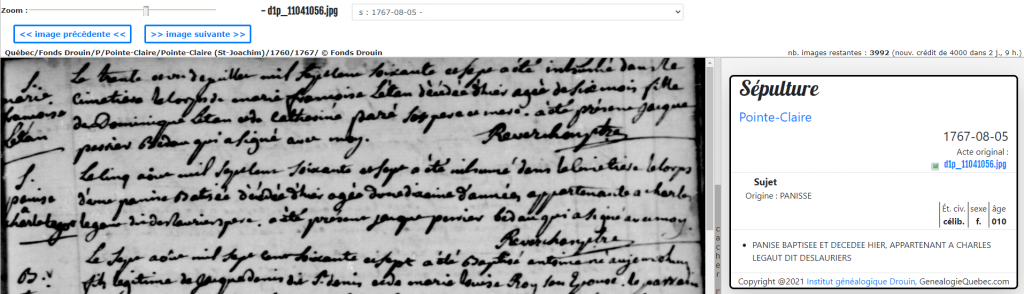 Zoom :
– d1p_11041056.jpg
s : 1767-08-05 -
<< image précédente <<
>> image suivante >>
Québec/Fonds Drouin/P/Pointe-Claire/Pointe-Claire (St-Joachim)/1760/1767/ © Fonds Drouin
nb. images restantes : 3992 (nouv. crédit de 4000 dans 2 j., 9 h.)
S. Le trente et un de juillet mil sept cent soixante et sept a été inhumé dans le
marie cimetiere le corps de marie françoise Letan décédée d'hier agée de six mois fille
françoise de Dominique Letan et de Catherine paré ses pere et mere. a été présent jacque
Letan perrier Bedau qui a signé avec moy. Reverchon ptre
S. Le cinq aout mil sept cent soixante et sept a été inhumé dans le cimetiere le corps
panise d'une panise Batisée décédée d'hier agée d'une dizaine d'années appartenante a charle
charle legau legau dit deslauriers pere. a été présent jacque perrier bedau qui a signé avec moy.
Reverchon ptre
Le Sept aout mil sept cent soixante et sept a été baptisé antoine né aujourd'huy
B. fils legitime de jacque denis dit St. denis et de marie louise Roy son Epouse. le parrain
cacher
Sépulture
Pointe-Claire
1767-08-05
Acte original :
d1p_11041056.jpg
Sujet
Origine : PANISSE
Ét. civ. sexe âge
célib. f. 010
• PANISE BAPTISEE ET DECEDEE HIER, APPARTENANT A CHARLES
LEGAUT DIT DESLAURIERS
Copyright @2021 Institut généalogique Drouin, GenealogieQuebec.com